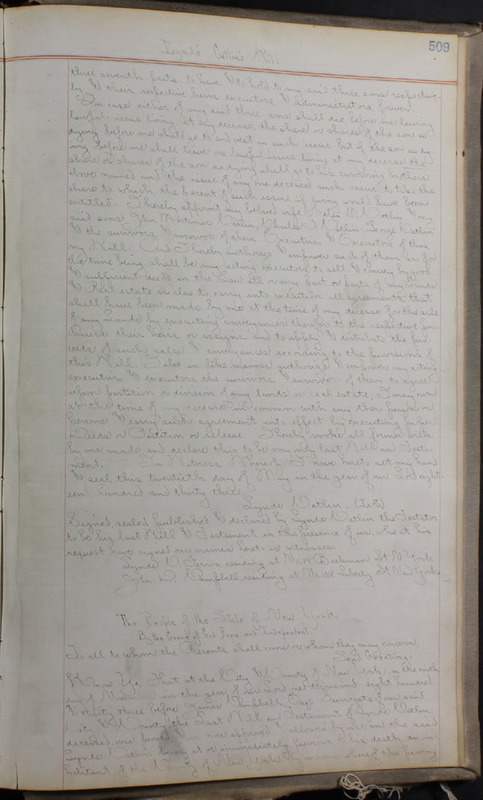 509
Lynde Catlin's Will
three seventh parts. to have & to hold to my said three sons respective-
ly & their respective heirs executors & administrators forever.
In case either of my said three sons shall die before me leaving
lawful issue living at my decease, the share or shares of the son so
dying before me shall go to and vest in such issue but if the son so dy-
ing before me shall leave no lawful issue living at my decease the
share or shares of the son so dying shall go to his surviving brothers
above named and the issue of any one deceased such issue to take the
share to which the parent of such issue if living would have been
entitled. I hereby appoint my beloved wife Helen M. Catlin & my
said sons John Mortimer Catlin, Charles Catlin George Catlin
& the survivors & survivor of them Executrix & Executors of this
my Will. And I hereby authorize & empower such of them as for
the time being shall be my acting executors to sell & convey by good
& sufficient deeds in the Law all or any part or parts of my lands
& real estate as also to carry into execution all agreements that
shall have been made by me at the time of my decease for the sale
of any lands by executing conveyances thereof to the respective pur-
chasers their heirs or assigns and to apply & distribute the pro-
ceeds of such sales & conveyances according to the provisions of
this Will. I also in like manner authorize & empower my acting
executrix & executors the survivors & survivor of them to agree
upon partition or division of any lands or real estate I may own
at the time of my decease in common with any other person or
persons & carry such agreement into effect by executing proper
Deeds of Partition or release. I hereby revoke all former wills
by me made and declare this to be my only last Will and Testa-
ment. In Witness Whereof I have hereto set my hand
& seal this twentieth day of May in the year of our Lord eight-
een hundred and thirty three.
Lynde Catlin (L.S)
Signed, sealed published & declared by Lynde Catlin the Testator
to be his last Will & Testament, in the presence of us, who at his
request have signed our names hereto as witnesses.
Lynde residing at No. Beekman St N. York
John W. Campbell residing at No 108 Liberty St. New York
The People of the State of New York,
By the Grace of God Free and Independent
To all to whom these Presents shall come or whom they may concern,
Send Greeting:
Know Ye, That at the City & County of New York, on the
day of in the year of our Lord one thousand eight hundred
& thirty three before James Campbell, Esqr Surrogate of our said
City & County, the Last Will and Testament of Lynde Catlin
deceased, was proved & is now approved & allowed by us and the said
Lynde Catlin being at or immediately previous to his death, an in-
habitant of the County of New York by means whereof the proving